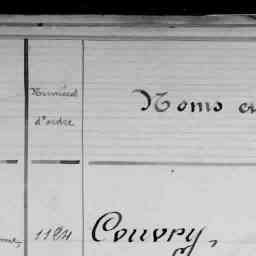 Numéros
d'ordre
Noms e
1124
Couvry,